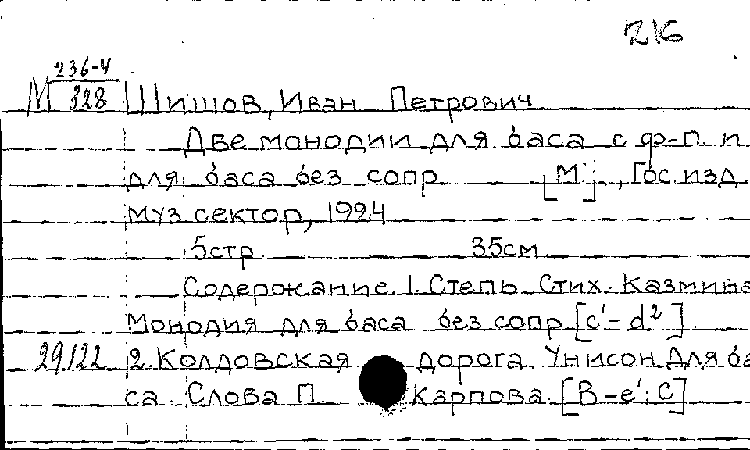 216
236-4
М 328 Шишов, Иван Петрович
Две монодии для баса с ф-п. и
для баса без сопр [М.], Гос. изд
муз сектор, 1924
5 стр 35 см
Содержание 1. Степь. Стих. Казмина
Монодия для баса без сопр. [c'-d²]
29122 2. Колдовская дорога. Унисон для ба
са. Слова П Карпова. [B-e'; C]